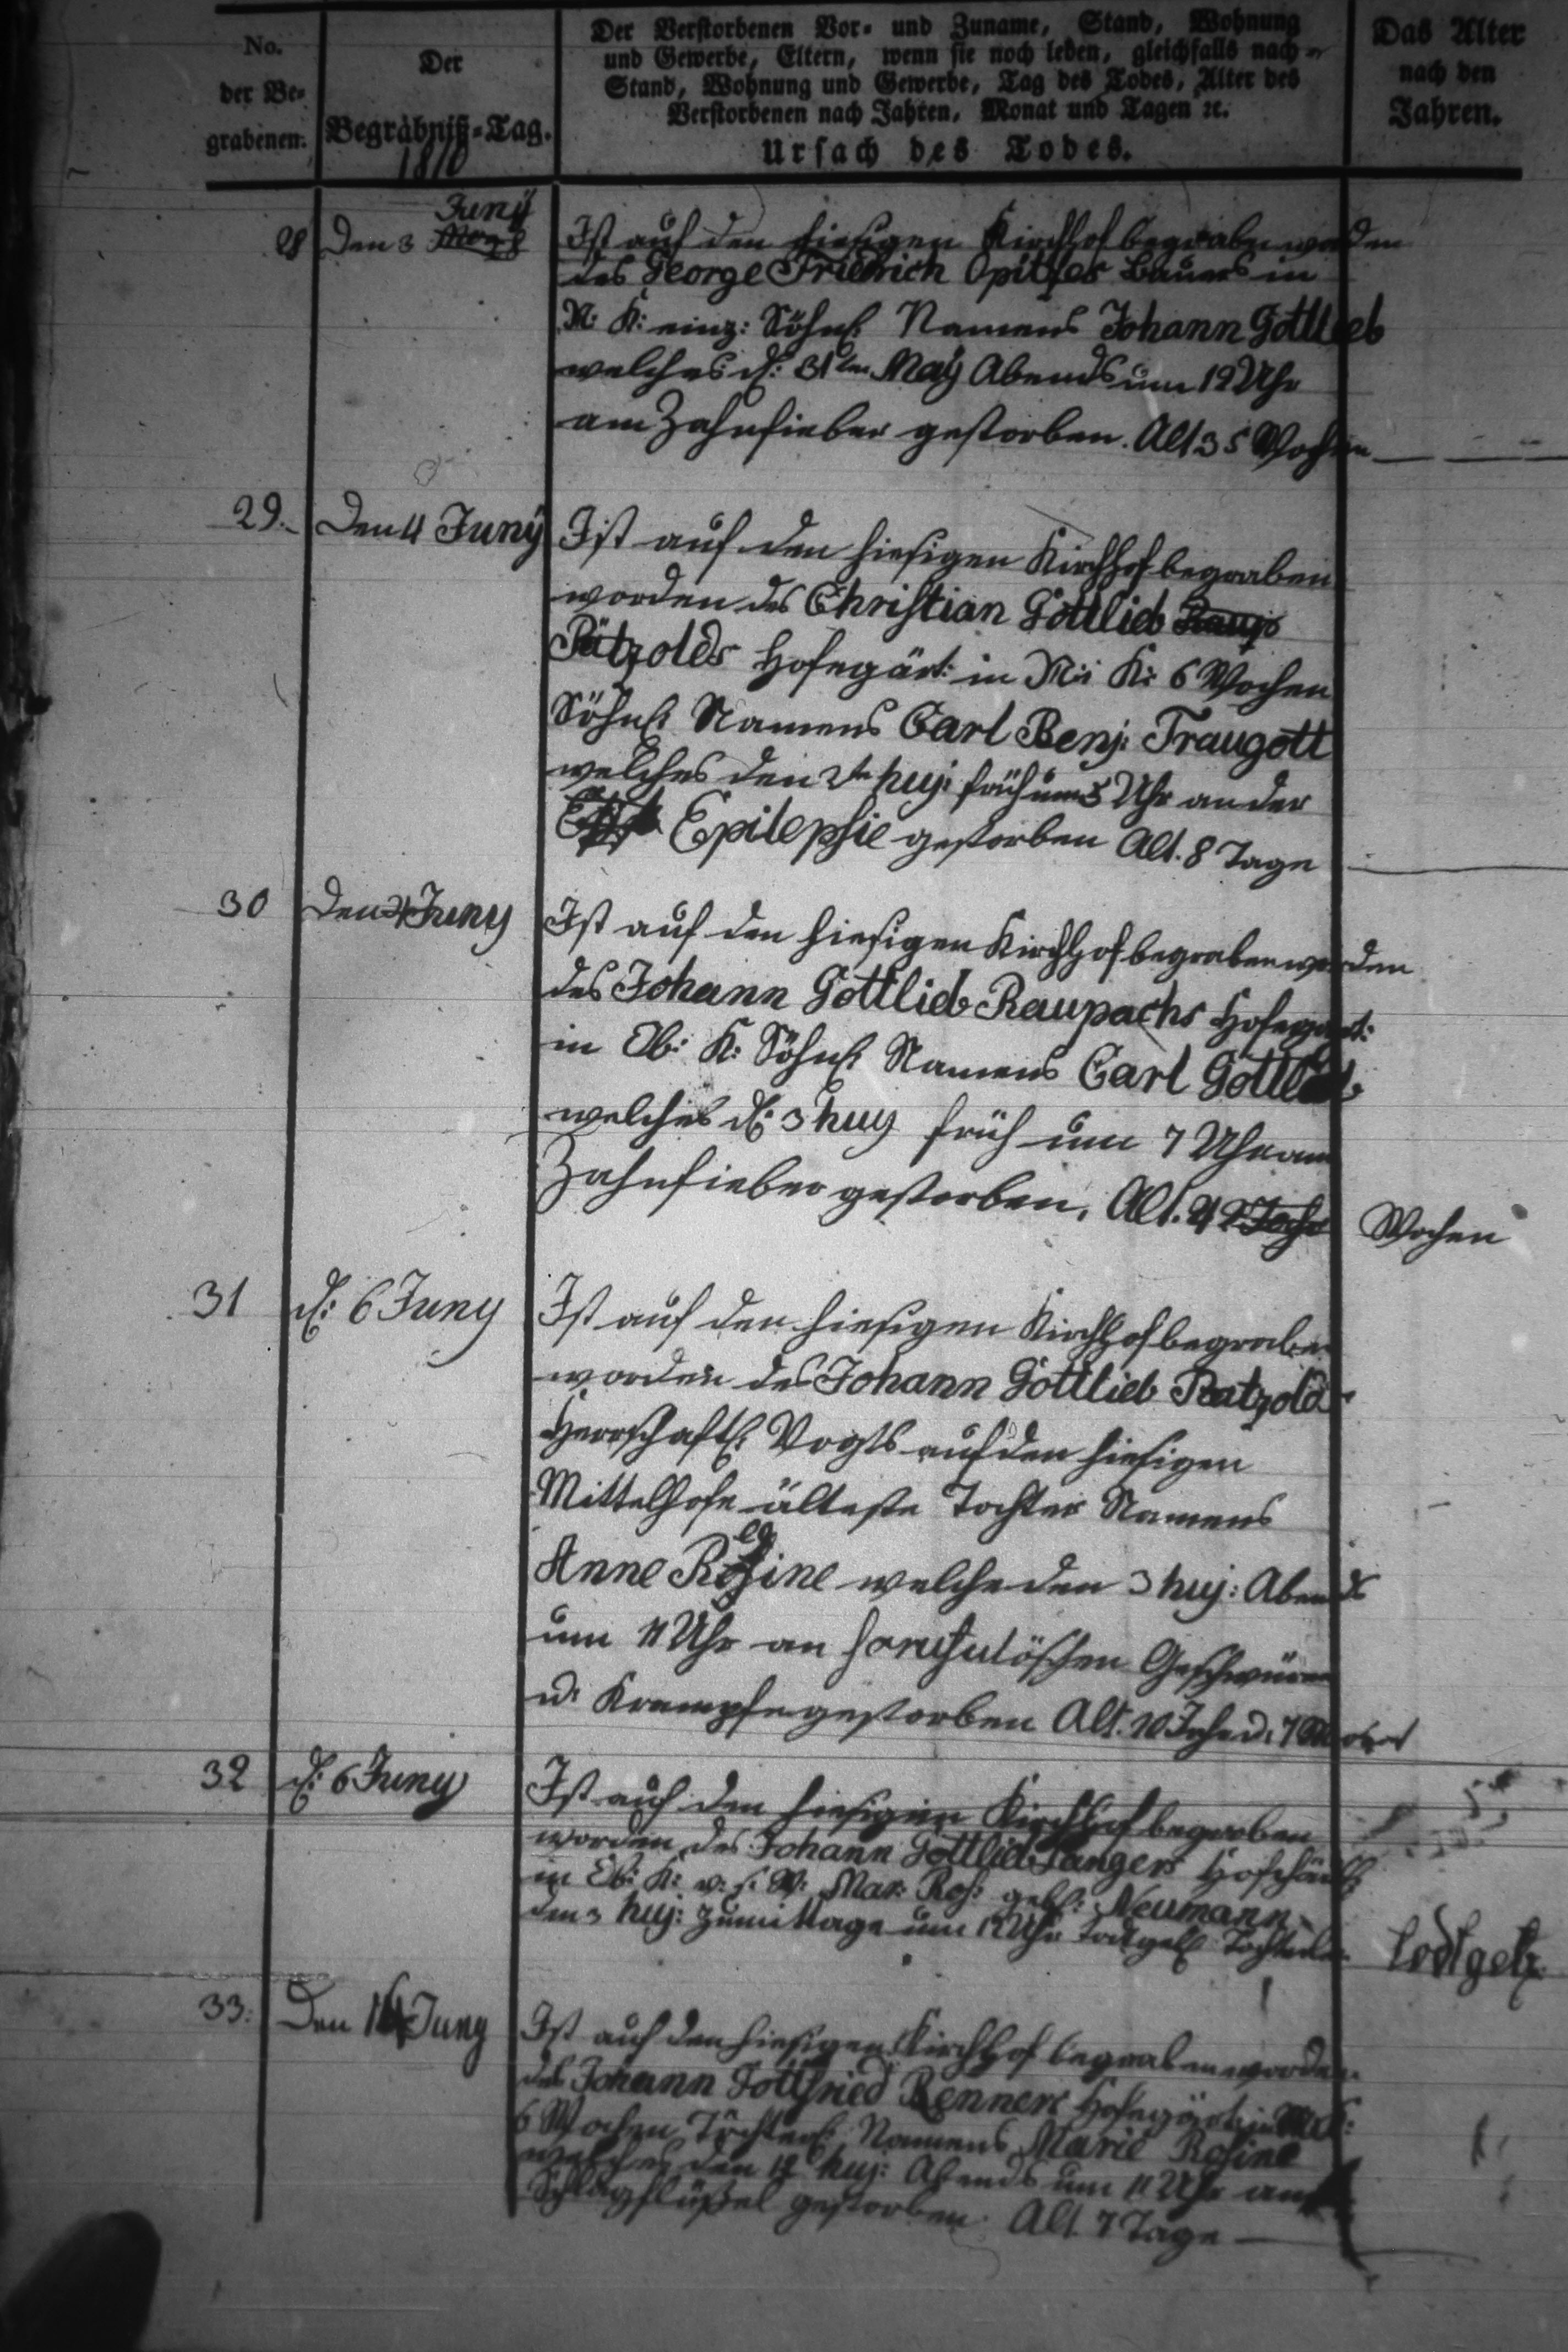 No. der Be- grabenen.
Der Begräbniß-Tag.
1810
Der Verstorbenen Vor- und Zuname, Stand, Wohnung
und Gewerbe, Eltern, wenn sie noch leben, gleichfalls nach
Stand, Wohnung und Gewerbe, Tag des Todes, Alter des
Verstorbenen nach Jahren, Monat und Tagen ꝛc.
Ursach des Todes.
Das Alter nach den Jahren.
Juny
28 Den 3 Ist auf den hiesigen Kirchhof begraben worden
des George Friedrich Opitzes Bauers in
N: K: einz: Söhnl: Namens Johann Gottlieb
welches d: 31ten May Abends um 12 Uhr
am Zahnfieber gestorben. Alt 35 Wochen
29. Den 4 Juny Ist auf den hiesigen Kirchhof begraben
worden des Christian Gottlieb Raup
Pätzolds Hofegärt: in M: K: 6 Wochen
Söhnl: Namens Carl Benj: Traugott
welches den 2tn huj: früh um 5 Uhr an der
Epilepsie gestorben Alt. 8 Tage
30 Den 4 Juny Ist auf den hiesigen Kirchhof begraben worden
des Johann Gottlieb Raupachs Hofegärt:
in Ob: K: Söhnl: Namens Carl Gottlieb
welches d: 3 huj früh um 7 Uhr am
Zahnfieber gestorben, Alt. Wochen
31 d: 6 Juny Ist auf den hiesigen Kirchhof begraben
worden des Johann Gottlieb Patzolds
Herrschaftl: Vogts auf den hiesigen
Mittelhofe älteste Tochter Namens
Anne Rosine welche den 3 huj: Abends
um 11 Uhr an scrufulöschen Geschwüren
u: Krampfe gestorben Alt. 10 Jahr
32 d: 6 Juny Ist auf den hiesigen Kirchhof begraben
worden des Johann Gottlieb Langers
in Ob: K: v: s: W: Mar: Ros: geb: Neumann
den 3 huj: zu Mittage um 12 Uhr todtgeb: todtgeb:
33: Den 14 Juny Ist auf den hiesigen Kirchhof begraben worden
des Johann Gottfried Renners Hofegärt: in M: K:
6 Wochen Töchterl: Namens Marie Rosine
welches den 12 huj: Abends um 11 Uhr am
Schlagflüßel gestorben. Alt 7 Tage